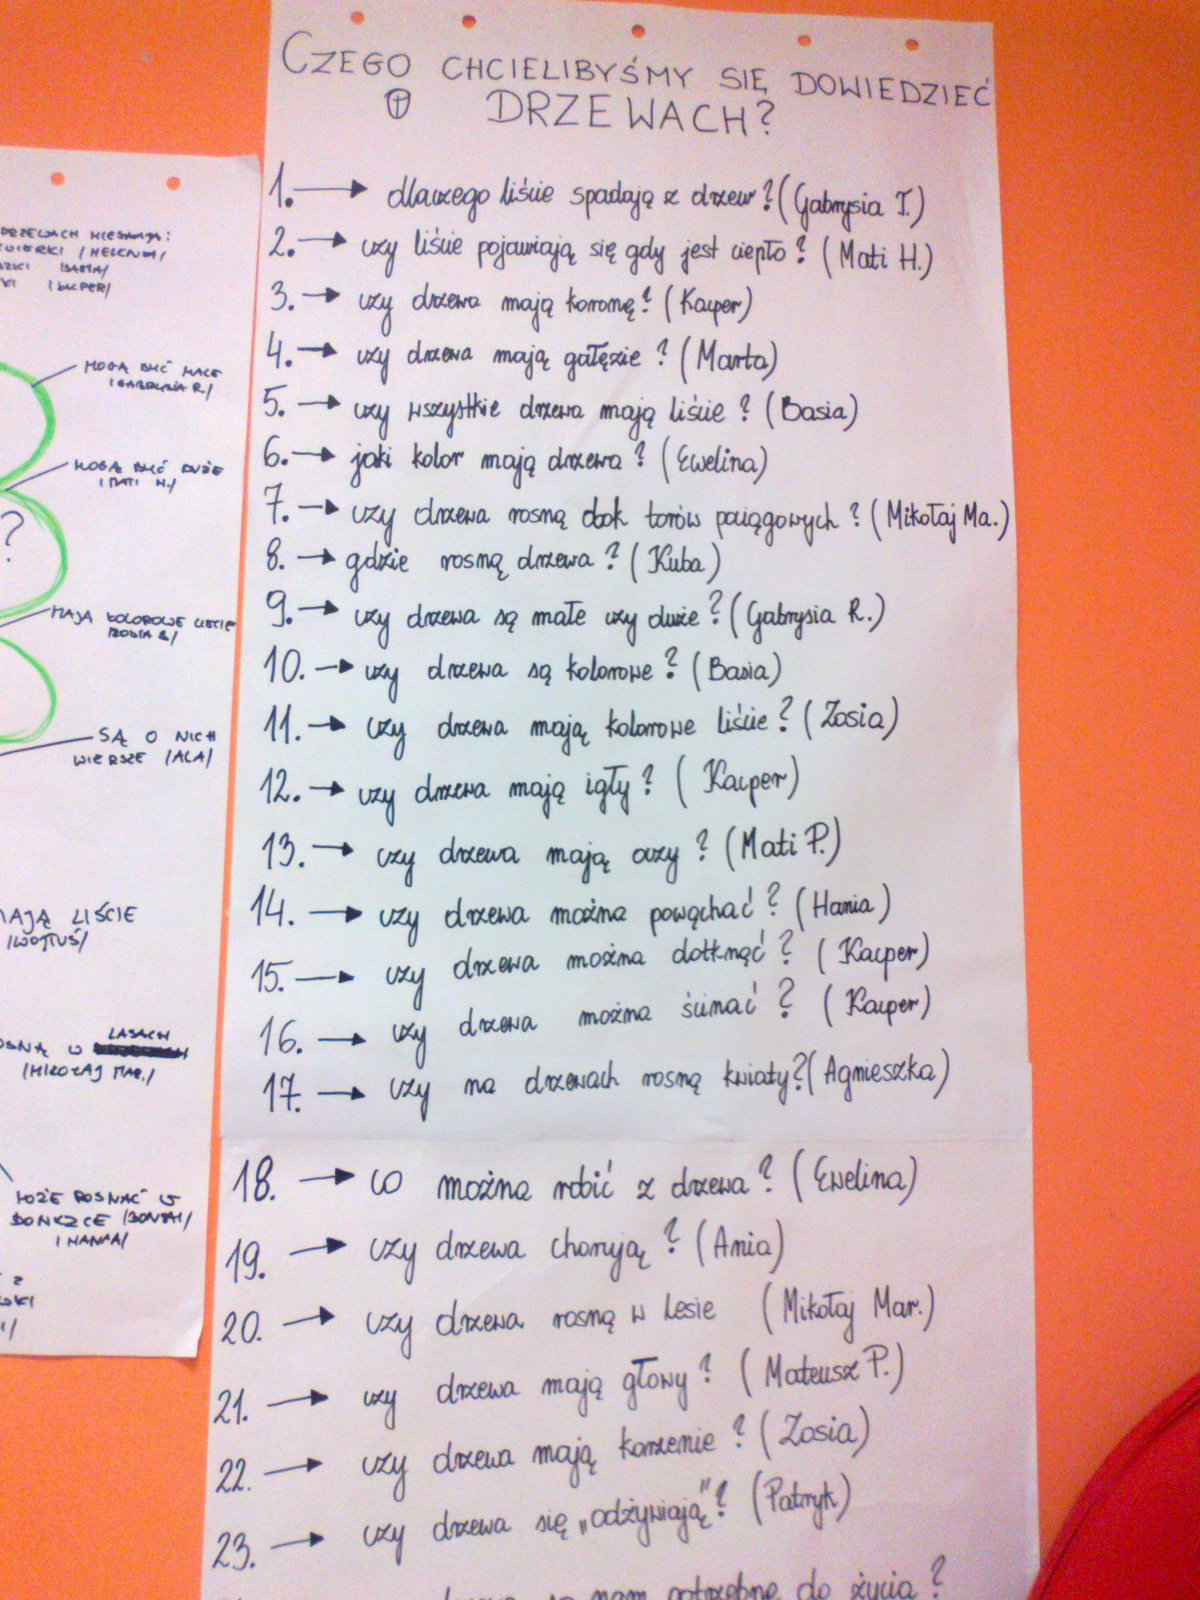 CZEGO CHCIELIBYŚMY SIĘ DOWIEDZIEĆ
O DRZEWACH?
1. → dlaczego liście spadają z drzew? (Gabrysia T.)
2. → czy liście pojawiają się gdy jest ciepło? (Mati H.)
3. → czy drzewa mają koronę? (Kacper)
4. → czy drzewa mają gałęzie? (Marta)
5. → czy wszystkie drzewa mają liście? (Basia)
6. → jaki kolor mają drzewa? (Ewelina)
7. → czy drzewa rosną obok torów pociągowych? (Mikołaj Ma.)
8. → gdzie rosną drzewa? (Kuba)
9. → czy drzewa są małe czy duże? (Gabrysia R.)
10. → czy drzewa są kolorowe? (Basia)
11. → czy drzewa mają kolorowe liście? (Zosia)
12. → czy drzewa mają igły? (Kacper)
13. → czy drzewa mają oczy? (Mati P.)
14. → czy drzewa można powąchać? (Hania)
15. → czy drzewa można dotknąć? (Kacper)
16. → czy drzewa można ścinać? (Kacper)
17. → czy na drzewach rosną kwiaty? (Agnieszka)
18. → co można robić z drzewa? (Ewelina)
19. → czy drzewa chorują? (Ania)
20. → czy drzewa rosną w lesie (Mikołaj Mar.)
21. → czy drzewa mają głowy? (Mateusz P.)
22. → czy drzewa mają korzenie? (Zosia)
23. → czy drzewa się „odżywiają"? (Patryk)
są nam potrzebne do życia?
DRZEWACH MIESZKAJĄ:
/HELENKA/
/BASIA/
/KACPER/
MOGĄ BYĆ MAŁE
/GABRYSIA R./
MOGĄ BYĆ DUŻE
/MATI H./
?
MAJĄ KOLOROWE LIŚCIE
SĄ O NICH
WIERSZE /ALA/
MAJĄ LIŚCIE
/WOJTUŚ/
W LASACH
/MIKOŁAJ MAR./
MOŻE ROSNĄĆ W
DONICZCE /BONSAI/
/HANIA/